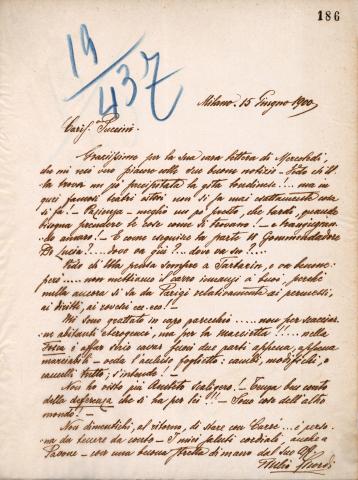 186
19
437
Milano. 15 Giugno 1900
Cariss. Puccini.
Graziissimo per la sua cara lettera di Mercoledì,
che mi recò vivo piacere colle sue buone notizie. Vedo ch'Ella
trova un po' precipitata la gita londinese!... ma in
quei famosi teatri esteri non si fa mai esattamente come
si fa. Pazienza - meglio un po' presto, che tardi, quando
bisogna prendere le cose come si trovano. - e
E come seguire la parte il Commendatore
De Lucia?.... dove va giù?... dove va
Vedo ch'Ella pensa sempre a Tartarin, e va benone:
però.... non mettiamo il carro innanzi a' buoi, perché
nulla ancora si sa da Parigi relativamente ai permessi,
ai diritti, ai rovesci ecc. ecc.!
Mi sono grattato in capo parecchio.... non per scacciar-
ne abitanti eterogenei, ma per la Marietta!!!.... nella
Tosca è affar serio cavar fuori due parti appena, appena
- veda l'accluso foglietto: cancelli, modifichi, o
cancelli tutto; s'intende! -
Non ho visto più Tenga buon conto
della deferenza che si ha per lei!!! - Sono cose dell'altro
mondo!!! -
Non dimentichi, al ritorno, di stare con Carré... è perso-
na da tenere da conto. - I miei saluti cordiali, anche a
Pavone - con una buona stretta di mano del suo aff.
Giulio Ricordi